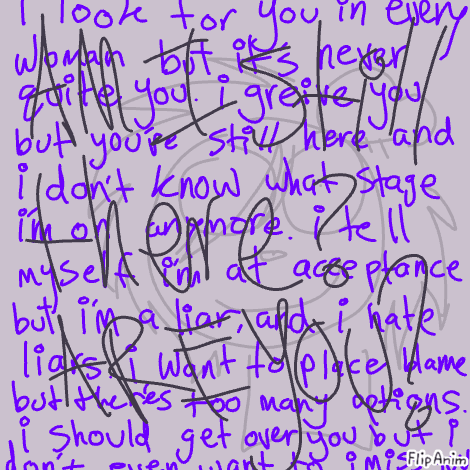 i look for you in every
woman but it's never
quite you. i greive you
but you're still here and
i don't know what stage
i'm on anymore. i tell
myself i'm at acceptance
but i'm a liar, and i hate
liars. i want to place blame
but there's too many options.
i should get over you but i
don't even want to. i miss
AM I STill
HERE?
ARE YOU?
FlipAnim